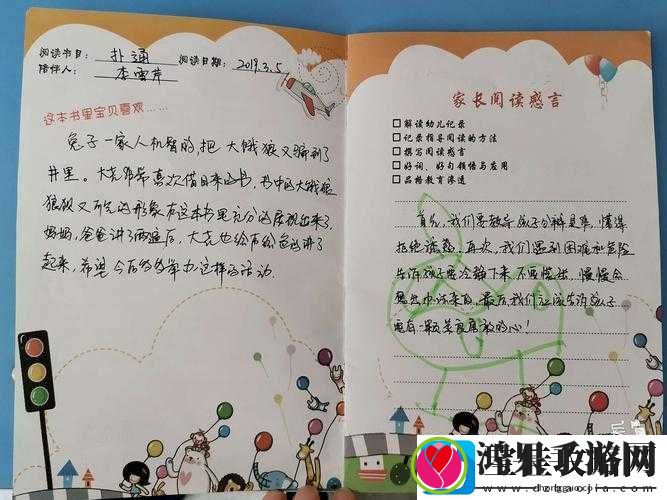 阅读书目： 扑通
阅读日期： 2019.3.5
陪伴人： 李雪芹
这本书里宝贝喜欢……
兔子一家人机智的，把大饿狼又骗到了
井里。大亮非常喜欢借回来这书，书中的大饿狼
狼狈又可气的形象在这本书里充分的展现出来了。
妈妈，爸爸讲了两遍后，大亮也给后给爸爸讲了
起来，希望今后多多举办这样的活动
家长阅读感言
解读幼儿记录
记录指导阅读的方法
撰写阅读感言
好词、好句领悟与应用
品格教育渗透
首先，我们要教导孩子分辨是非，懂得
拒绝诱惑，再次，我们遇到困难和危险
告诉孩子要冷静下来，不要慌张，慢慢会
想出办法来的，最后，我们应该告诉孩子
要有一颗勇敢的心！
鸿雁攻略网
www.dongbaojia.com